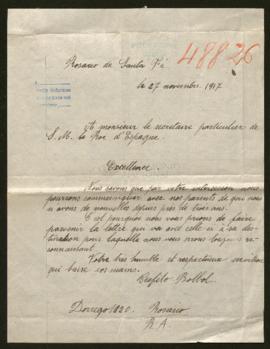 48826
Rosario de Santa Fé
le 27 novembre 1917
A monsieur le secretaire particulier de
S. M. le Roi d'Espagne.
Excellence.
Nous savons que par votre intercession nous
pourrons communiquer avec nos parents de qui nous
n'avons de nouvelles depuis de trois ans.
C'est pourquoi nous vous prions de faire
parvenir la lettre que va sous celle ci à sa des-
tination pour laquelle nous vous serons
connaissant.
Votre très humble et respectueux serviteur
qui baise vos mains.
Teofilo Bollol.
Dorrego 1820. Rosario
R. A.